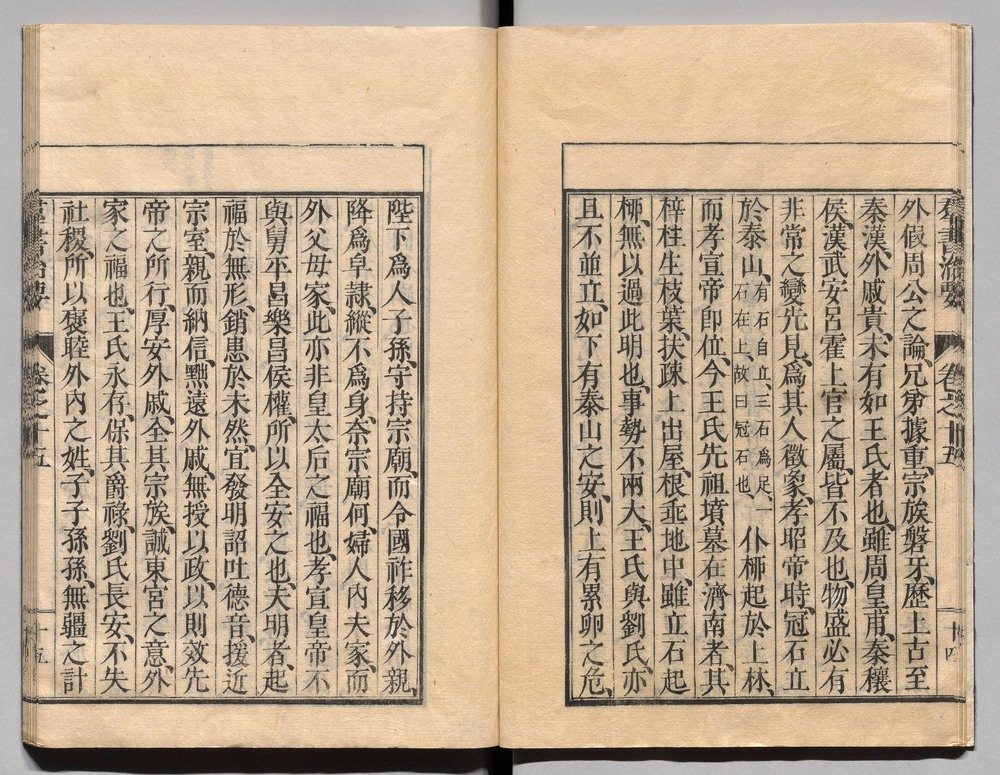 羣書治要 卷之廿五 廿四
外假周公之論、兄弟據重、宗族磐牙、歷上古至
秦漢、外戚貴、未有如王氏者也、雖周皇甫、秦穰
侯、漢武安呂霍上官之屬、皆不及也、物盛必有
非常之變先見、爲其人徵象、孝昭帝時、冠石立
於泰山、有石自立、三石爲足、一石在上、故曰冠石也、仆柳起於上林、
而孝宣帝即位、今王氏先祖墳墓在濟南者、其
梓柱生枝葉、扶疎上出屋、根垂地中、雖立石起
柳、無以過此明也、事勢不兩大、王氏與劉氏、亦
且不並立、如下有泰山之安、則上有累卵之危、
陛下爲人子孫、守持宗廟、而令國祚移於外親、
降爲皁隷、縱不爲身、奈宗廟何、婦人內夫家、而
外父母家、此亦非皇太后之福也、孝宣皇帝不
與舅平昌樂昌侯權、所以全安之也、夫明者、起
福於無形、銷患於未然、宜發明詔吐德音、援近
宗室、親而納信、黜遠外戚、無授以政、以則效先
帝之所行、厚安外戚、全其宗族、誠東宮之意、外
家之福也、王氏永存、保其爵祿、劉氏長安、不失
社稷、所以褒睦外內之姓、子子孫孫、無疆之計
羣書治要 卷之廿五 十五